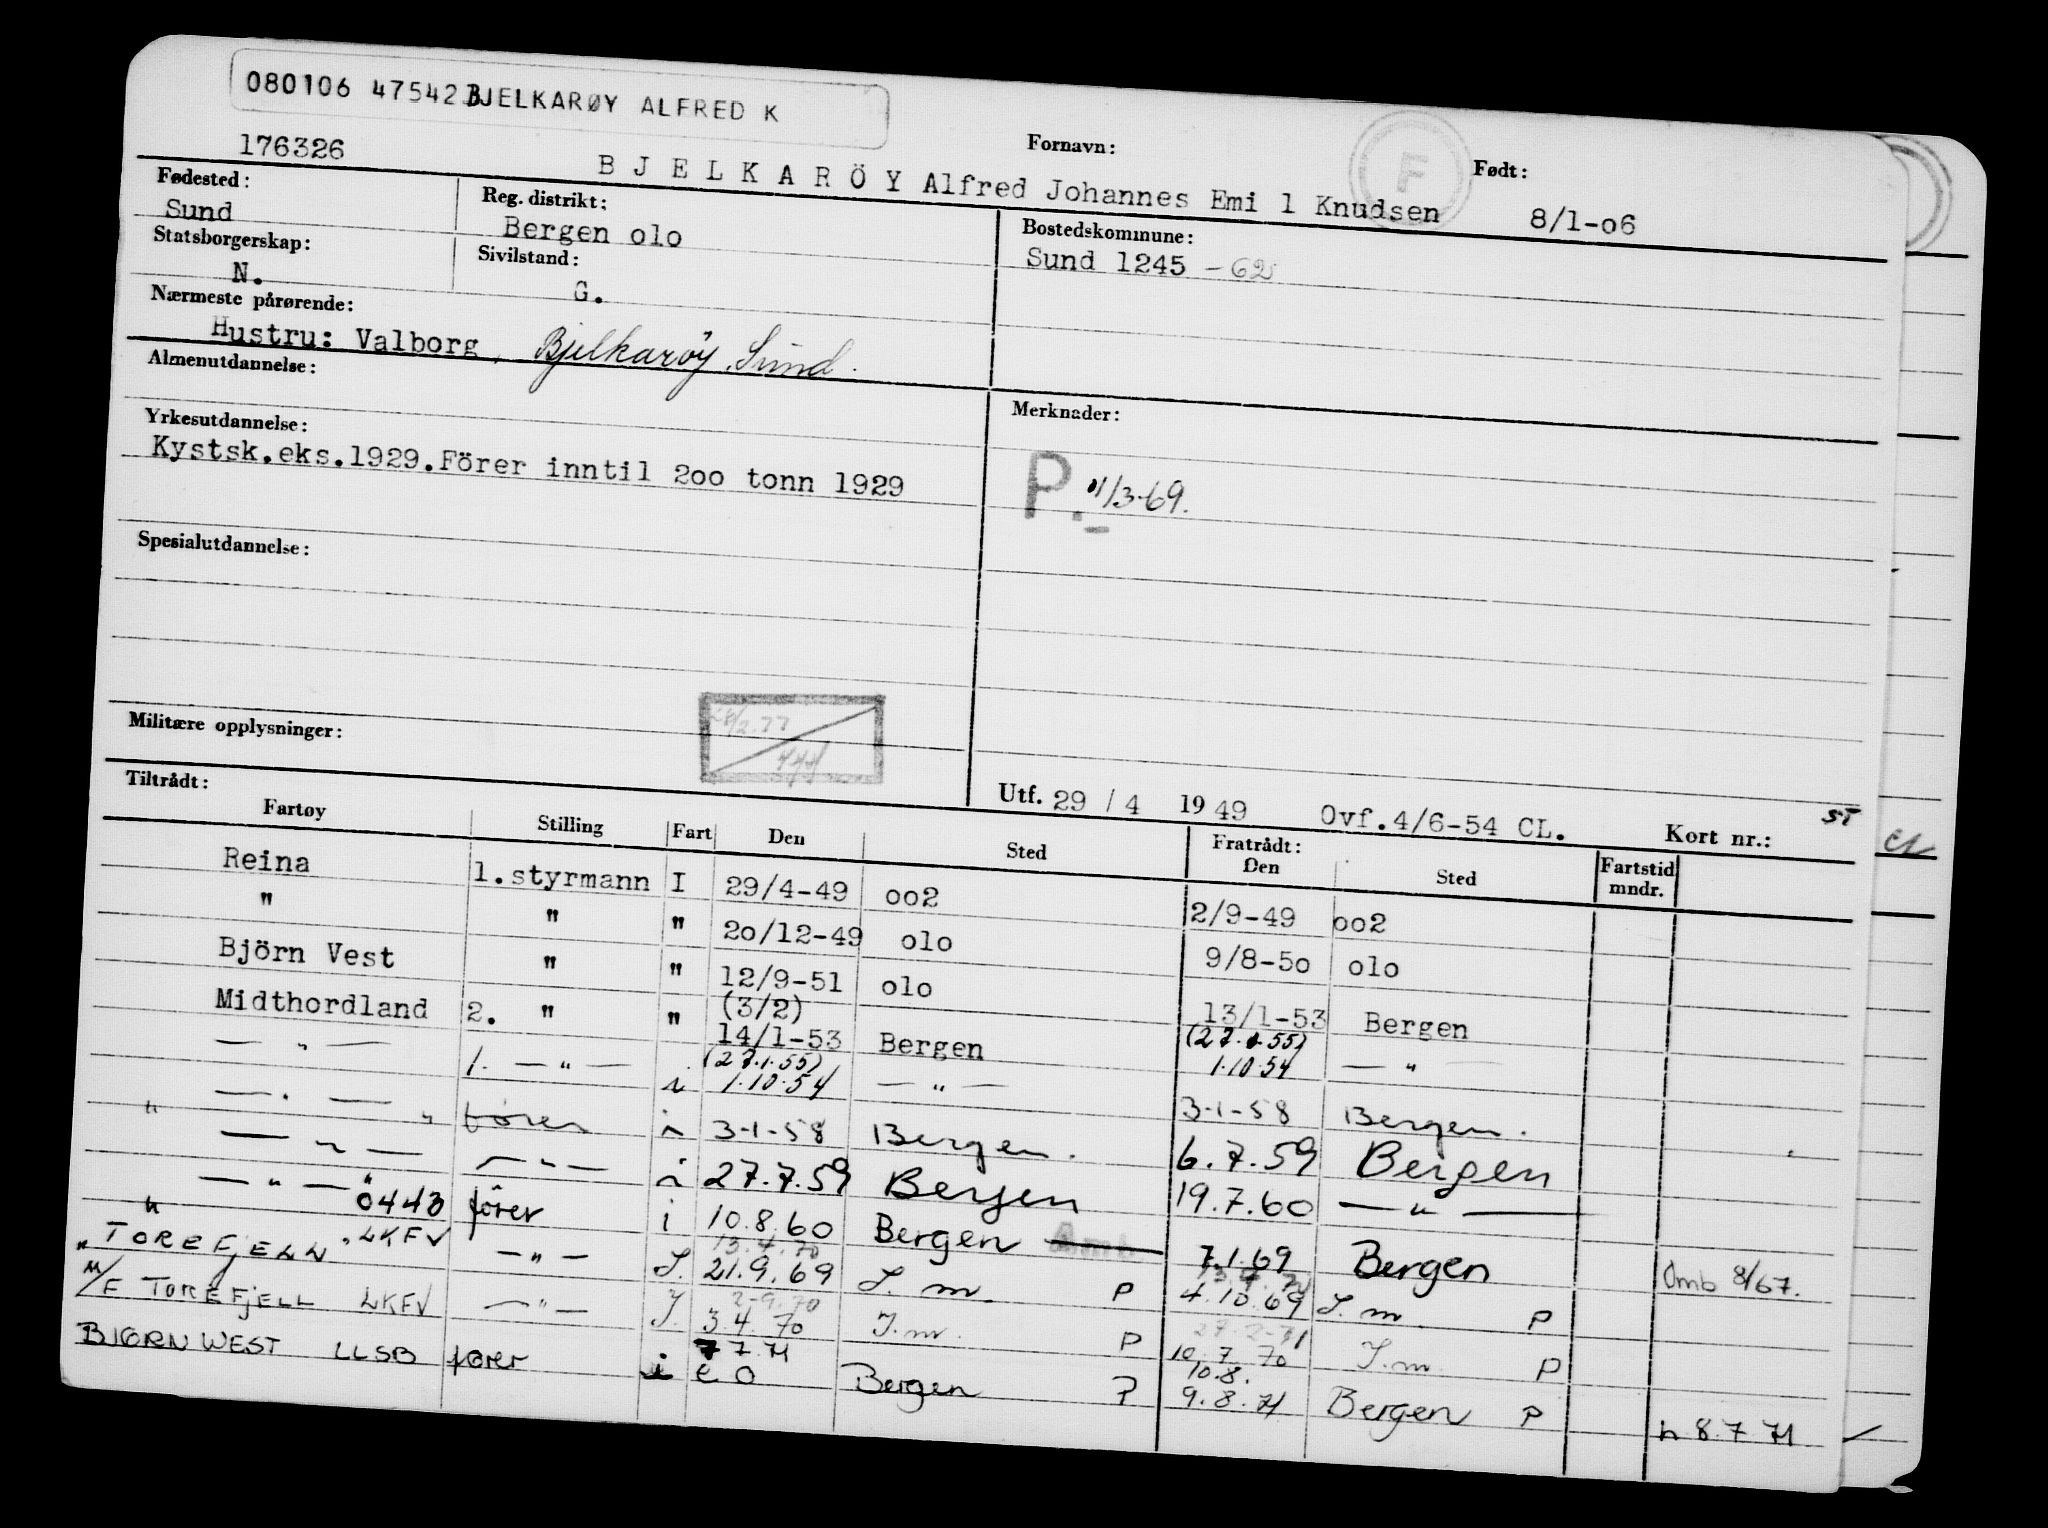 080106 47542 BJELKARØY ALFRED K
176326
Fornavn:
Født:
F
B J E L K A R Ö Y Alfred Johannes Emi l Knudsen 8/1-o6
Fødested:
Sund
Reg. distrikt:
Bergen olo
Bostedskommune:
Sund 1245 - 62
Statsborgerskap:
N.
Sivilstand:
G.
Nærmeste pårørende:
Hustru: Valborg, Bjelkaröy, Sund.
Almenutdannelse:
Yrkesutdannelse:
Kystsk.eks.1929.Förer inntil 2oo tonn 1929
Merknader:
P. 01/3-69.
Spesialutdannelse:
Militære opplysninger:
28/2.77
Utf. 29 / 4 1949 Ovf.4/6-54 CL. Kort nr.: ST
Tiltrådt:
Fartøy Stilling Fart Den Sted Fratrådt: Den Sted Fartstid mndr.
Reina 1.styrmann I 29/4-49 oo2 2/9-49 oo2
" " " 2o/12-49 olo 9/8-5o olo
Björn Vest " " 12/9-51 olo 13/1-53 Bergen
Midthordland 2. " " (3/2) 14/1-53 Bergen (27.1.55) 1.10.54 — " —
— " — 1. — " — (27.1.55) 1.10.54 — " — 3-1-58 Bergen.
— " — fören i 3-1-58 Bergen. 6.7.59 Bergen
— " — — " — i 27.7.59 Bergen 19.7.60 — " —
— " — 0443 förer i 10.8.60 Bergen 7.1.69 Bergen Omb 8/67.
" TOREFJELL " LKFV — " — I. 13.4.70 21.9.69 I. m. P 4.10.69 I. m. P
M/F TOREFJELL LKFV — " — I. 2-9.70 3.4.70 I. m. P 27.2-71 10.7.70 I. m. P
BJØRN WEST LLSB fører i 7.7.71 Bergen P 10.8. 9.8.71 Bergen P h 8.7.71